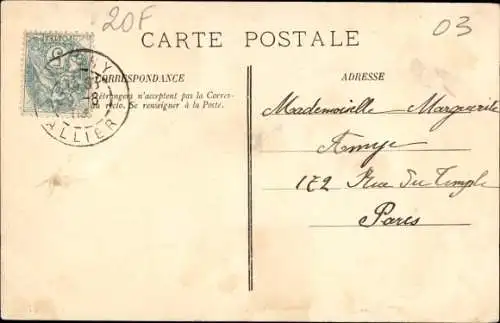 20F
03
CARTE POSTALE
CORRESPONDANCE
étrangers n'acceptent pas la Corres-
recto. Se renseigner à la Poste.
ALLIER
ADRESSE
Mademoiselle Marguerite
172 Rue du Temple
Paris